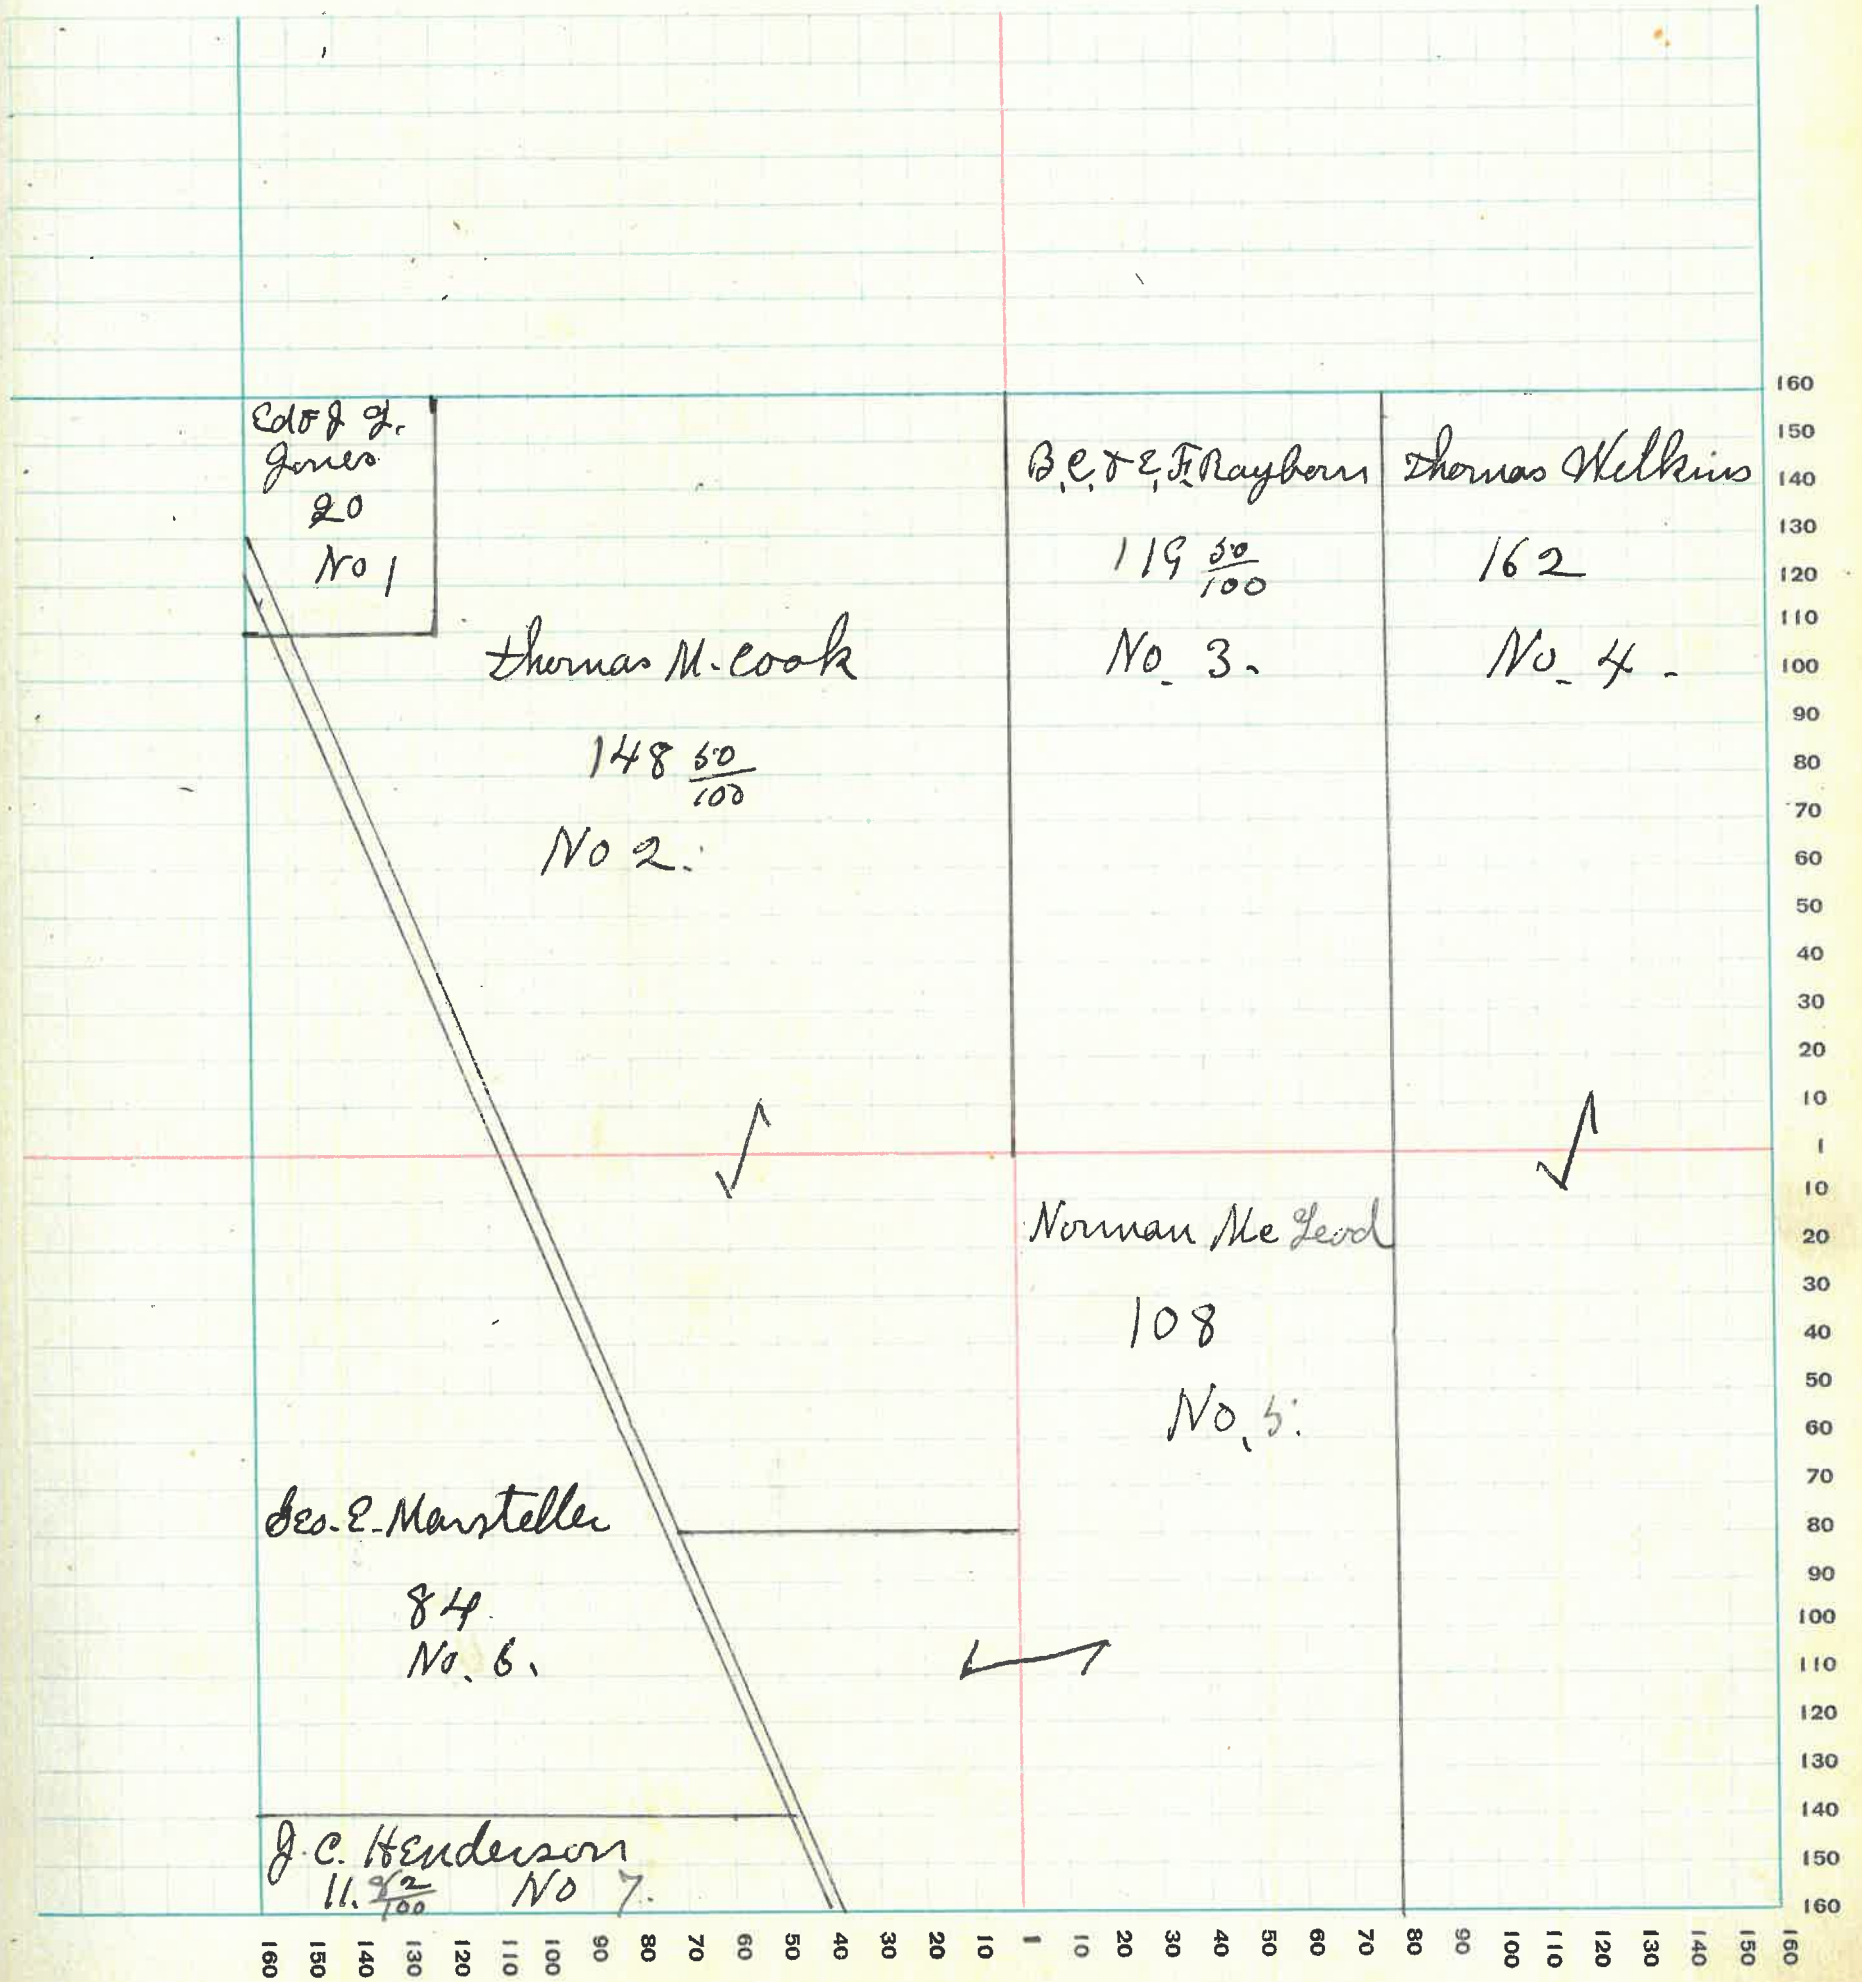 Ed & J. J.
Jones
20
No 1
Thomas M. Cook
148 50/100
No 2.
B. C. & E. F. Rayborn
119 50/100
No. 3.
Thomas Welkins
162
No. 4.
Norman Mc Leod
108
No. 5.
Geo. E. Marsteller
84
No. 6.
J. C. Henderson
11. 82/100 No 7.
160
150
140
130
120
110
100
90
80
70
60
50
40
30
20
10
1
10
20
30
40
50
60
70
80
90
100
110
120
130
140
150
160
160 150 140 130 120 110 100 90 80 70 60 50 40 30 20 10 1 10 20 30 40 50 60 70 80 90 100 110 120 130 140 150 160